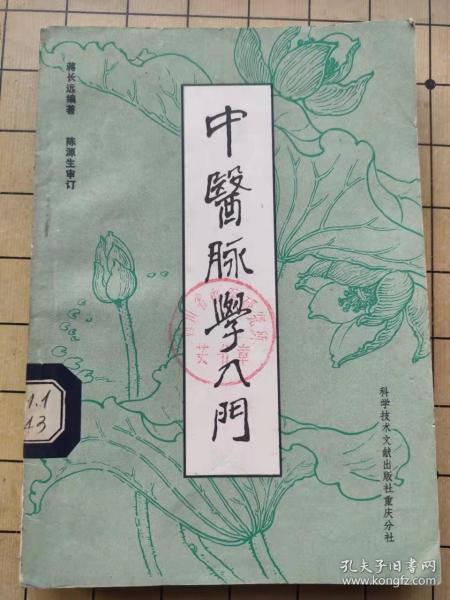 蒋长远编著
陈源生审订
中醫脉學入門
科学技术文献出版社重庆分社
1.1
13
孔夫子旧书网
www.kongfz.com